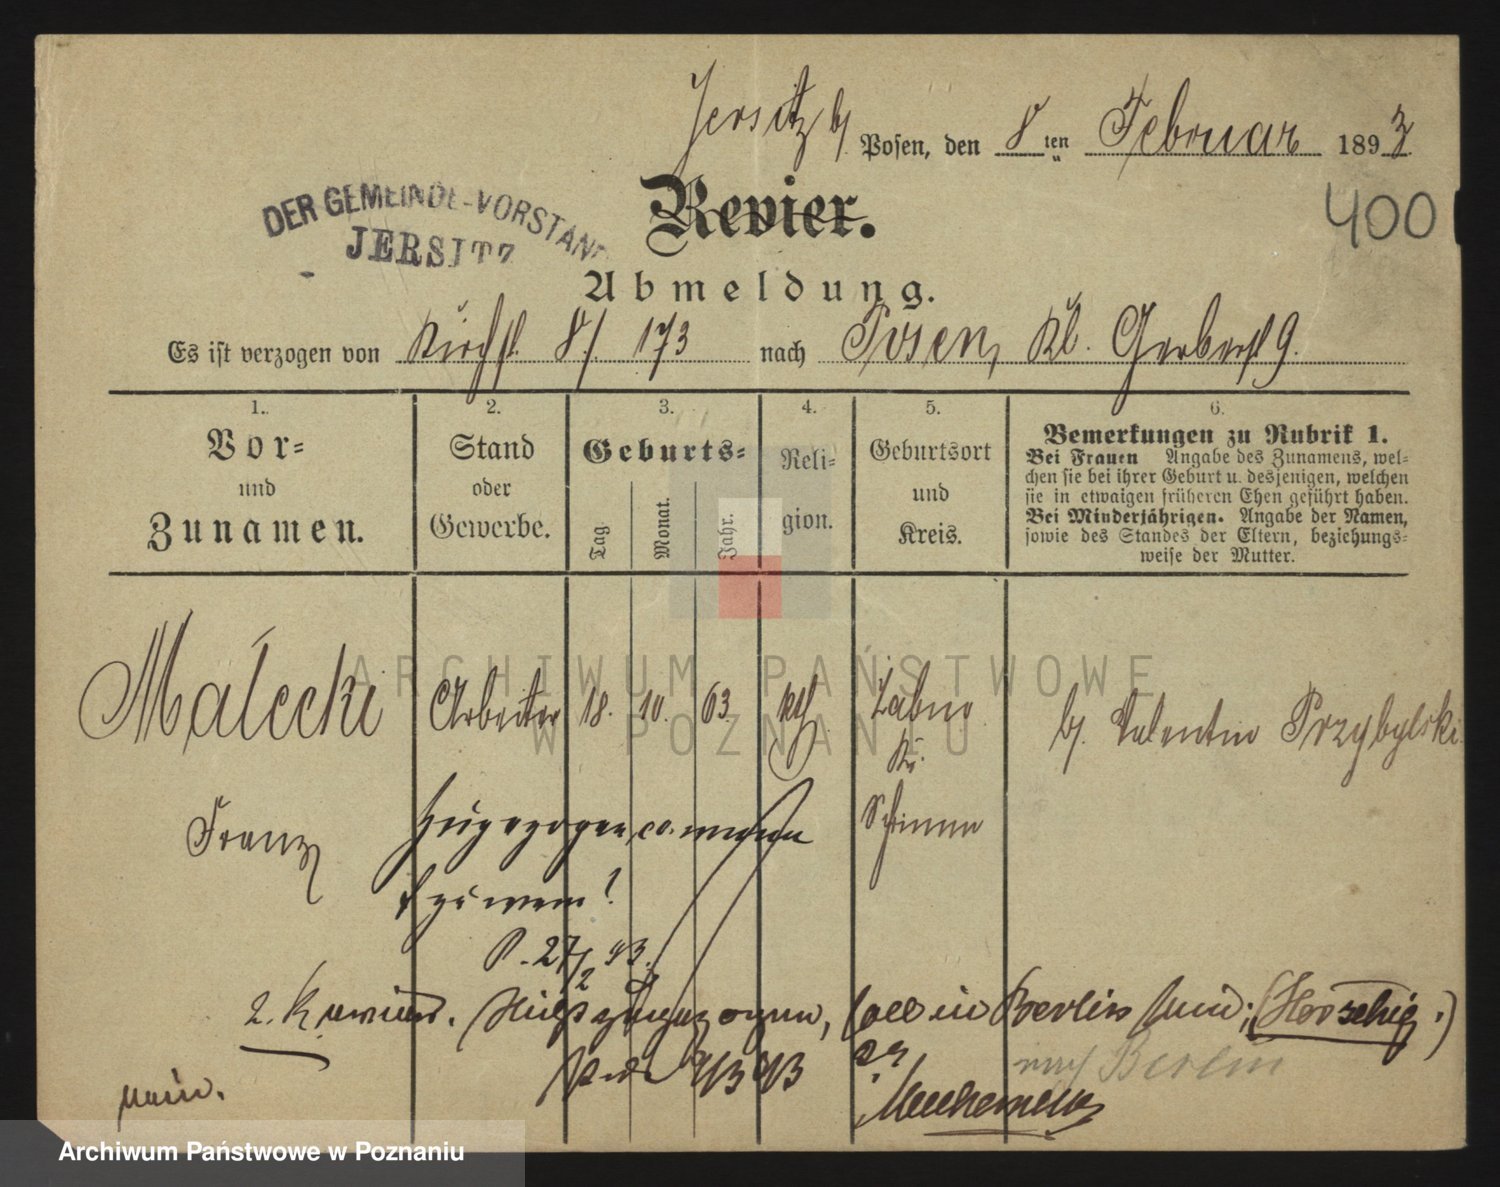 Jersitz b/ Posen, den 8 ten Februar 1893
400
DER GEMEINDE-VORSTAND
JERSITZ
Revier.
Abmeldung.
Es ist verzogen von Kirchst. 8/ 173 nach Posen, Kl. Gerberst 9.
1. 2. 3. 4. 5. 6.
Vor- und Zunamen.
Stand oder Gewerbe.
Geburts-
Tag. Monat. Jahr.
Reli-
gion.
Geburtsort und Kreis.
Bemerkungen zu Rubrik 1.
Bei Frauen Angabe des Zunamens, wel-
chen sie bei ihrer Geburt u. desjenigen, welchen
sie in etwaigen früheren Ehen geführt haben.
Bei Minderjährigen. Angabe der Namen,
sowie des Standes der Eltern, beziehungs-
weise der Mutter.
Małecki Arbeiter 18. 10. 63 kth. Zabno b/. Valentin Przybylski
Kr.
Franz Schrimm
Zugezogen, wann
& zu wem?
P. 27/2 93.
2. K soll in Berlin sein; (Horschig.)
3/3 93
nach Berlin
ARCHIWUM PAŃSTWOWE
W POZNANIU
Archiwum Państwowe w Poznaniu